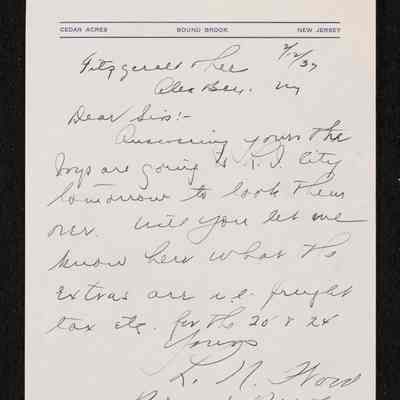 CEDAR ACRES BOUND BROOK NEW JERSEY
Fitzgerald & Lee 2/12/37
Alex Bay. NY
Dear Sirs:-
Answering yours the
boys are going to L.I. City
tomorrow to look them
over. Will you let me
know here what the
extras are i.e. freight
tax etc. for the 20 & 24
Yours
L. N.